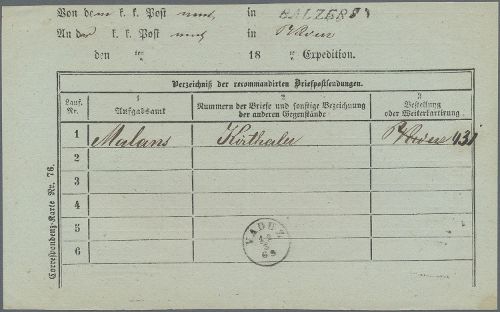 Von dem k. k. Post in BALZERS
An der k. k. Post in
den ten 18 er Expedition.
Verzeichniß der recommandirten Briefpostsendungen.
Lauf. Nr. 1 Aufgabsamt 2 Nummern der Briefe und sonstige Bezeichnung der anderen Gegenstände 3 Bestellung oder Weiterkartirung
1 Malans 431
2
3
4
5
6
VADUZ
Correspondenz-Karte Nr. 76.